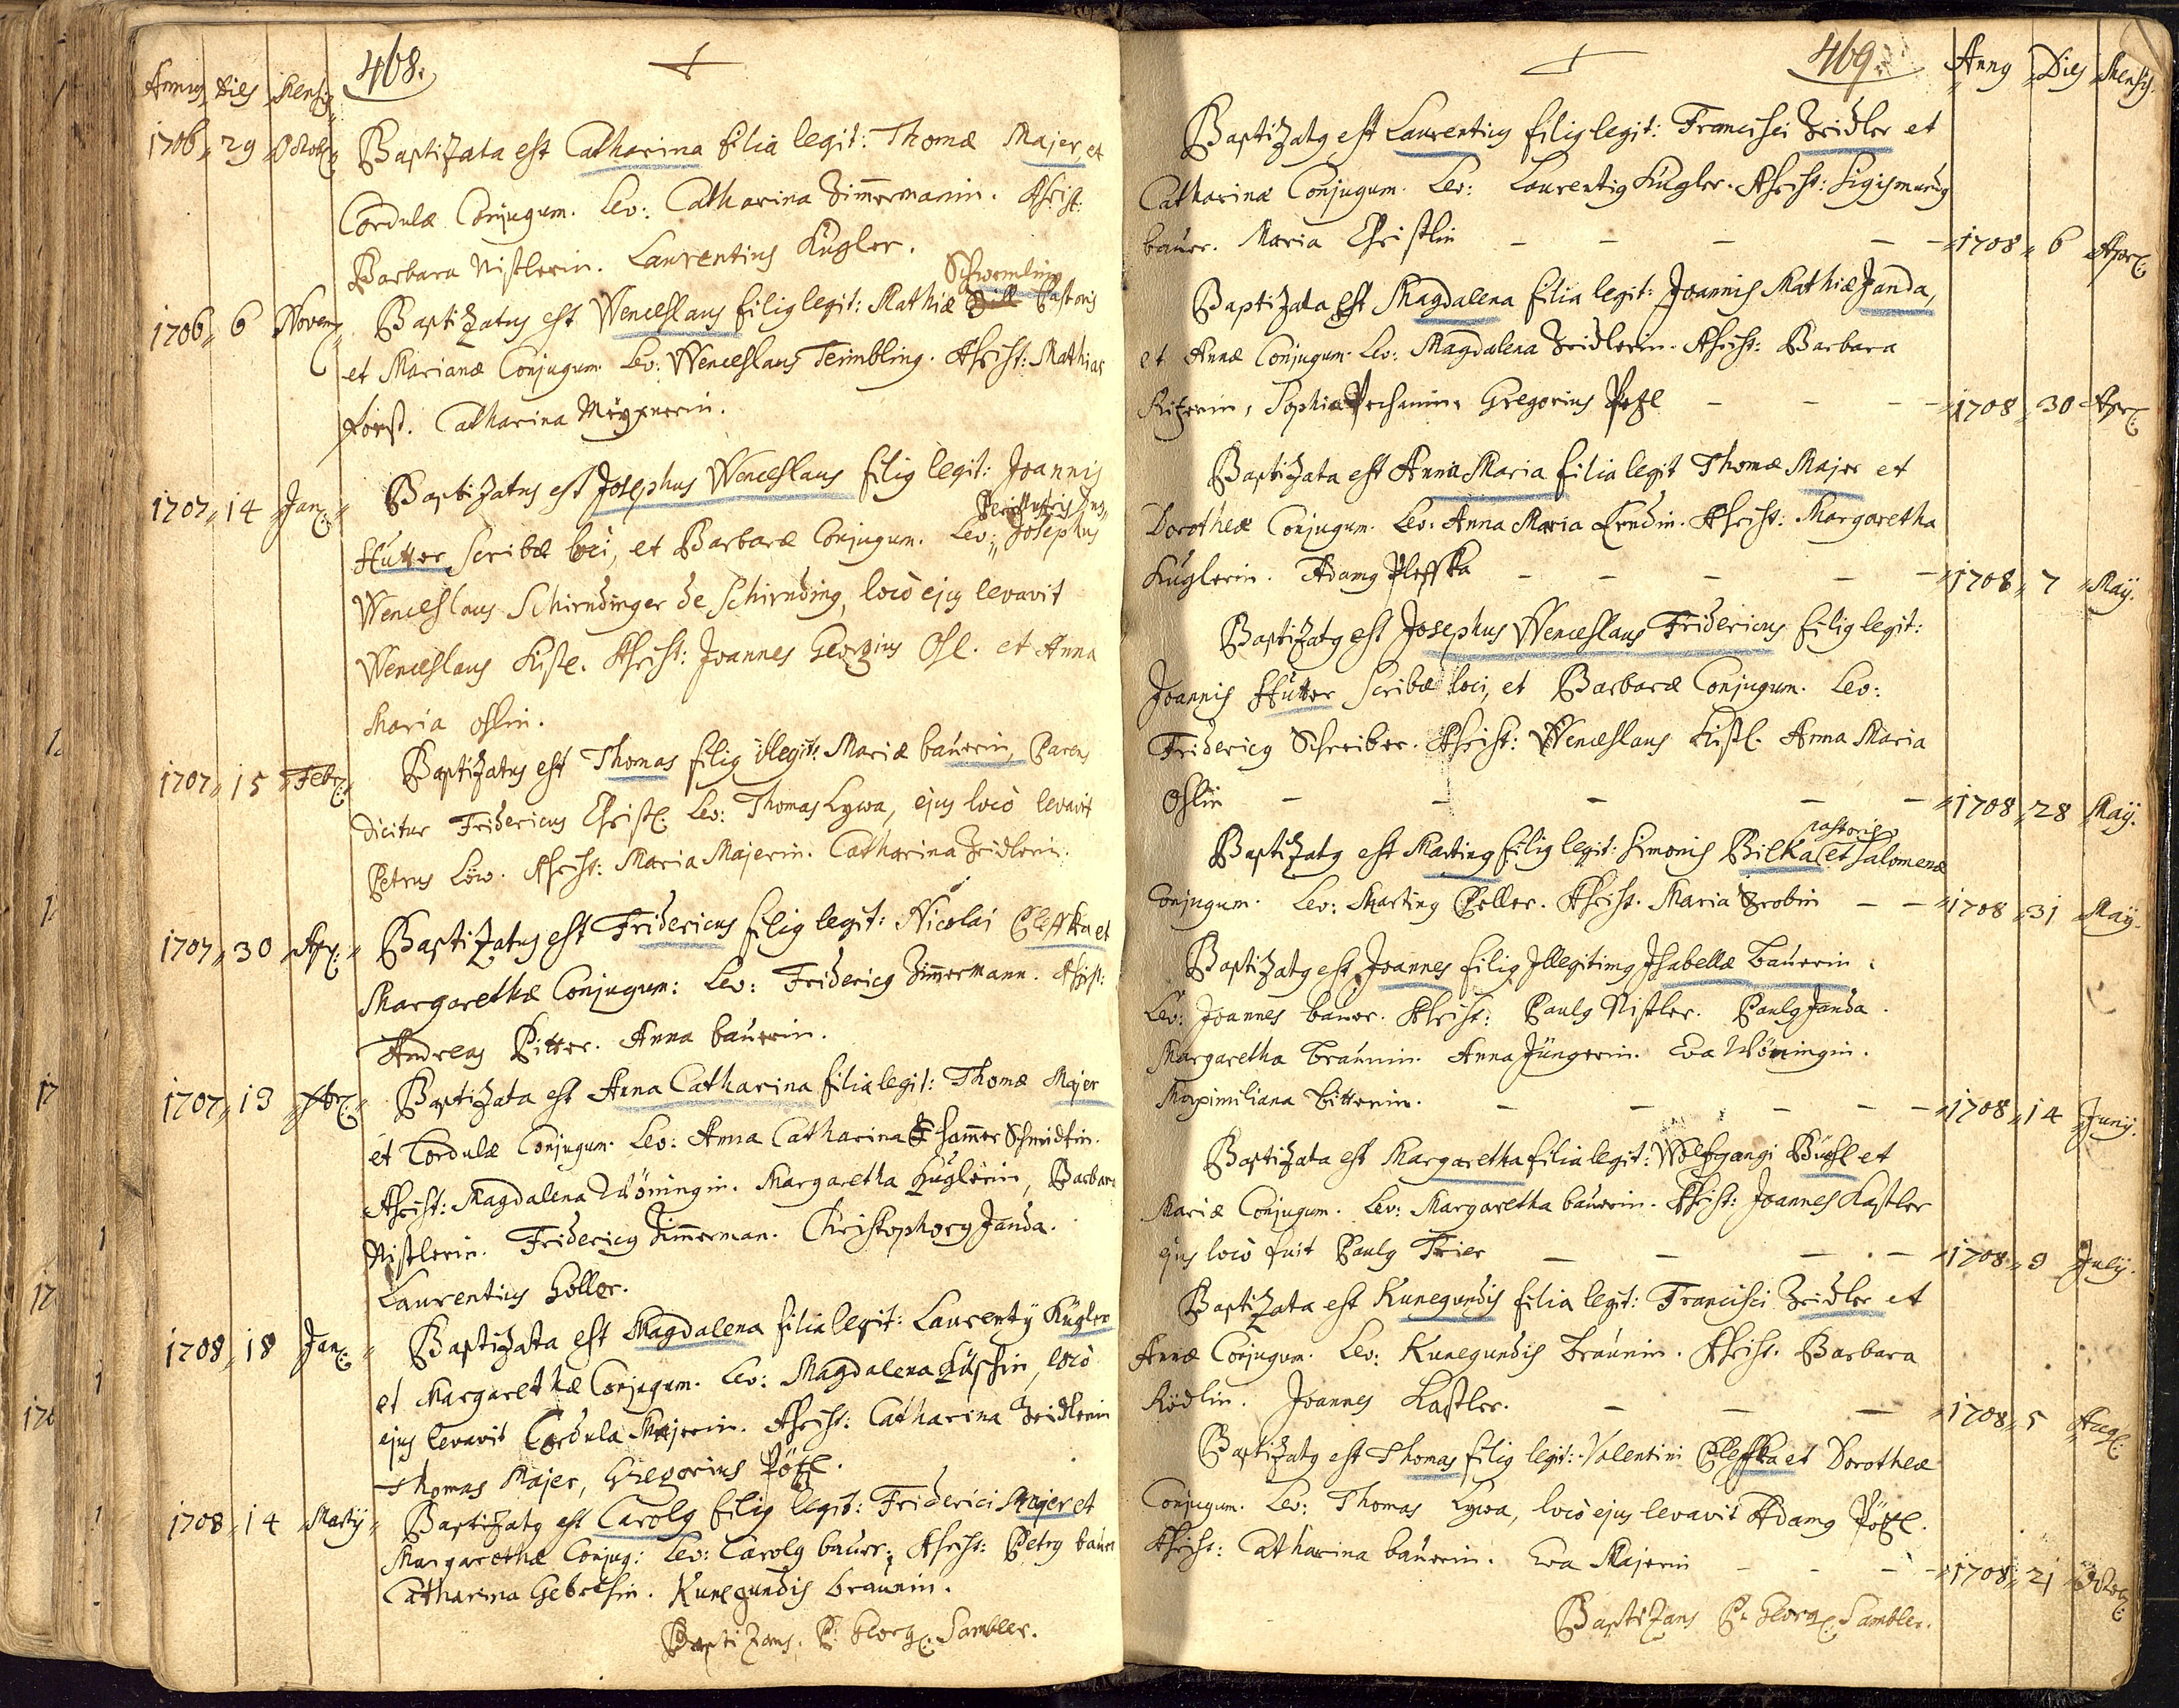 468.
Annus Dies Mensis
1706 29 Octob: Baptizata est Catharina filia legit: Thomæ Majer et
Cordulæ Conjugum. Lev: Catharina Zim̄ermanin. Assist:
Barbara Nistlerin. Laurentius Kugler.
Schwemling
1706 6 Novem: Baptizatus est Wenceslaus filiq legit: Mathiæ Pastoris
et Marianæ Conjugum. Lev: Wenceslaus Teimbling. Assist: Mathias
Forst. Catharina
1707 14 Jan: Baptizatus est Josephus Wenceslaus filiq legit: Joannis
Perillustris Dns
Hutter Scribæ loci, et Barbaræ Conjugum. Lev: Josephus
Wenceslaus Schirndinger de Schirnding, locò ejq levavit
Wenceslaus Kistl. Assist: Joannes Georgius Osl. et Anna
Maria Oslin.
1707 15 Febr: Baptizatus est Thomas filiq illegit: Mariæ baüerin, Parens
dicitur Fridericus Christl. Lev: Thomas Lywa, ejus locò levavit
Petrus Löw. Assist: Maria Majerin. Catharina Zeidlerin.
1707 30 Apr: Baptizatus est Fridericus filiq legit: Nicolai Pleffka et
Margarethæ Conjugum: Lev: Fridericq Zim̄ermann. Assist:
Andreas Pitter. Anna baüerin.
1707 13 Baptizata est Anna Catharina filia legit: Thomæ Majer
et Cordulæ Conjugum. Lev: Anna Catharina Ham̄erSchmidtin.
Assist: Magdalena Wöningin. Margaretha Kuglerin, Barbara
Nistlerin. Fridericq Zim̄erman. Christophorq Janda.
Laurentius Holler.
1708 18 Jan: Baptizata est Magdalena filia legit: Laurentÿ Kugler
et Margarethæ Conjugum. Lev: Magdalena, locò
ejus levavit Cordula Majerin. Assist: Catharina Zeidlerin
Thomas Majer, Gregorius Pötzl.
1708 14 Martÿ Baptizatq est Carolq filiq legit: Friderici Majer et
Margarethæ Conjug: Lev: Carolq baüer; Assist: Petrq baüer
Catharina Gebertsin. Kunegundis Braunin.
Baptizans, P: Georg: Sambler.
469.
Annq Dies Mensis
Baptizatq est Laurentius filiq legit: Francisci Zeidler et
Catharinæ Conjugum. Lev: Laurentiq Kugler. Assist: Sigismundq
baüer. Maria Christlin 1708 6 Apr:
Baptizata est Magdalena filia legit: Joannis Mathiæ Janda,
et Annæ Conjugum. Lev: Magdalena Zeidlerin. Assist: Barbara
Sophia Gregorius Pötzl 1708 30 Apr:
Baptizata est Anna Maria filia legit Thomæ Majer et
Dorotheæ Conjugum. Lev: Anna Maria Assist: Margaretha
Kuglerin. Adamq Pleffka 1708 7 Maÿ.
Baptizatq est Josephus Wenceslaus Fridericus filiq legit:
Joannis Hutter Scribæ loci, et Barbaræ Conjugum. Lev:
Fridericq Schreiber. Assist: Wenceslaus Kistl. Anna Maria
Oslin 1708 28 Maÿ.
pastoris
Baptizatq est Martinq filiq legit: Simonis Bilka et Salomenæ
Conjugum. Lev: Martinq Peller. Assist. Maria 1708 31 Maÿ.
Baptizatq est Joannes filiq Illegitimq Isabellæ Baüerin.
Lev: Joannes baüer. Assist: Paulq Nistler. Paulq Janda.
Margaretha Braunin. Anna Jüngerin. Eva Wöningin.
Maximiliana Bitterin. 1708 14 Junÿ.
Baptizata est Margaretha filia legit: Wolfgangi et
Mariæ Conjugum. Lev: Margaretha baüerin. Assist: Joannes Kastler
ejus locò fuit Paulq Trier 1708 9 Julÿ.
Baptizata est Kunegundis filia legit: Francisci Zeidler et
Annæ Conjugum. Lev: Kunegundis Braunin. Assist. Barbara
Rödlin. Joannes Kastler. 1708 5 Aug:
Baptizatq est Thomas filiq legit: Valentini Pleffka et Dorotheæ
Conjugum. Lev: Thomas Lywa, locò ejus levavit Adamq Pötzl.
Assist: Catharina baüerin. Eva Majerin 1708 21 Octob:
Baptizans P: Georg: Sambler.